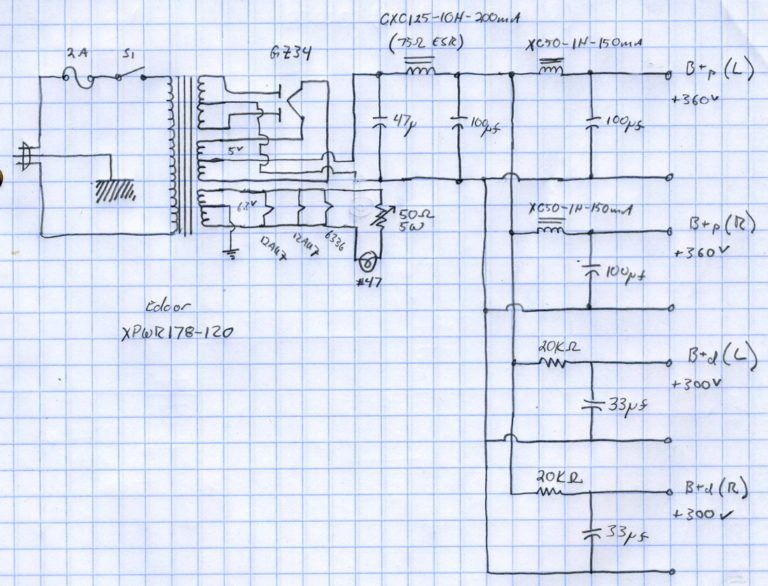 CXC125-10H-200mA
2A
S1
GZ34
(75Ω ESR)
XC50-1H-150mA
B+p (L)
+360V
47µ
100µf
100µf
5V
XC50-1H-150mA
6.3V
50Ω
5W
B+p (R)
+360V
12AU7
12AU7
6336
100µf
#47
Edcor
XPWR178-120
20KΩ
B+d (L)
+300V
33µf
20KΩ
B+d (R)
+300V
33µf